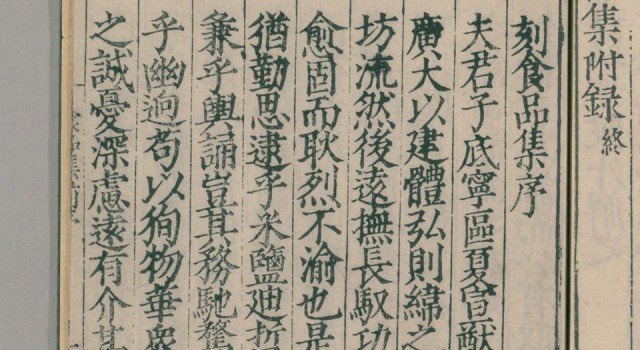 集附録終
刻食品集序
夫君子底寧區夏會猷
廣大以建體弘則緯之
坊流然後遠撫長馭功
愈固而耿烈不渝也是
猶勤思逮乎米鹽迪哲
兼乎輿誦豈其務馳騖
乎幽迥苟以徇物華衆
之誠憂深慮遠有介其